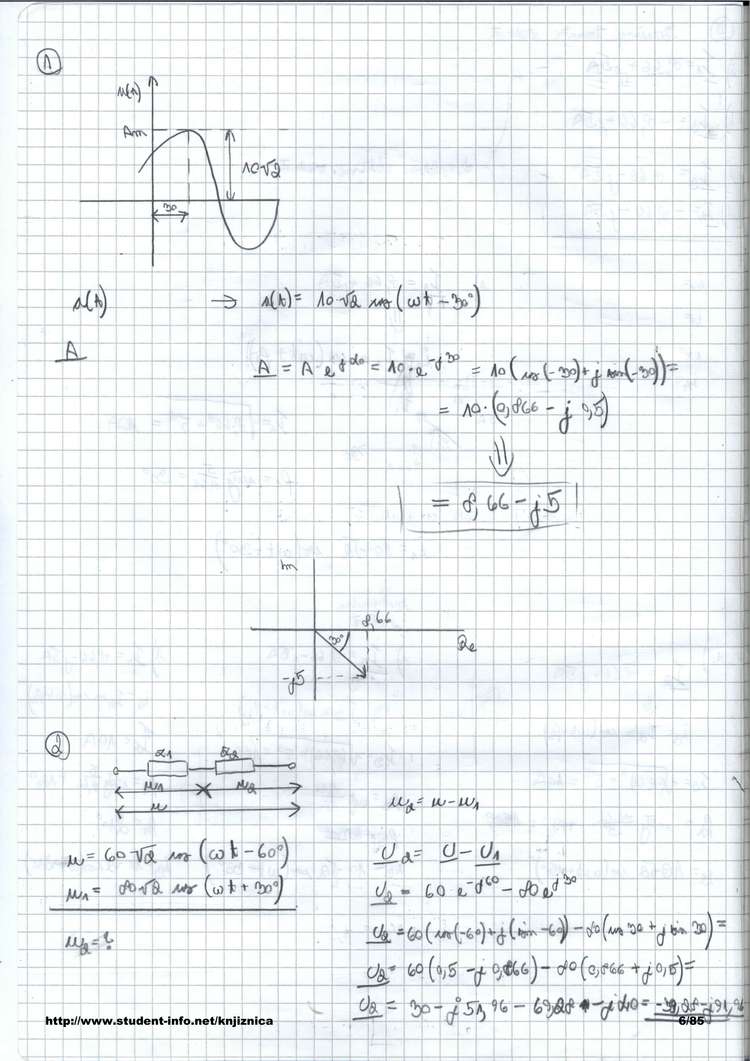 1
u(t)
Am
10√2
30
u(t) → u(t) = 10√2 cos (ωt − 30°)
A
A = A · e^jα0 = 10 · e^-j30 = 10 (cos(-30) + j sin(-30)) =
= 10 · (0,866 − j 0,5)
⇓
= 8,66 − j5
Im
8,66
30°
Re
-j5
2
Z1 Z2
u1 u2
u
u2 = u − u1
u = 60√2 cos (ωt − 60°)
u1 = 80√2 cos (ωt + 30°)
u2 = ?
U2 = U − U1
U2 = 60 e^-j60 − 80 e^j30
U2 = 60 (cos(-60) + j (sin -60) − 80 (cos 30 + j sin 30) =
U2 = 60 (0,5 − j 0,866) − 80 (0,866 + j 0,5) =
U2 = 30 − j 51,96 − 69,28 − j 40 = -39,28 − j 91,96
http://www.student-info.net/knjiznica
6/85